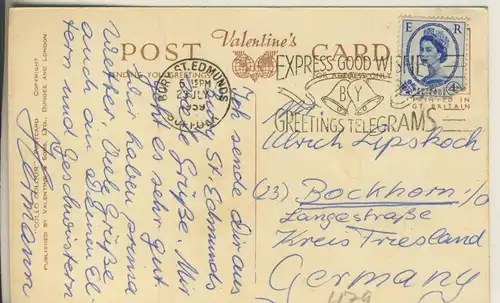 POST
Valentine's
CARD
SENDING YOU GREETINGS
FOR ADDRESS ONLY
BURY ST. EDMUNDS
5 15PM
1959
SUFFOLK
EXPRESS GOOD WISHES
BY
GREETINGS TELEGRAMS
E R
PRINTED IN
GT. BRITAIN
"COLLO COLOUR" POSTCARD COPYRIGHT
PUBLISHED BY VALENTINE & SONS LTD., DUNDEE AND LONDON
Ich sende Dir aus
Bury St. Edmunds
viele Grüße. Mir
geht es sehr gut
Wir haben prima
Wetter. Viele Grüße
auch an Deinen El-
tern und Geschwistern
Hermann
Ulrich Lipskoch
(23) Bockhorn i/o
Langestraße
Kreis Friesland
Germany
479